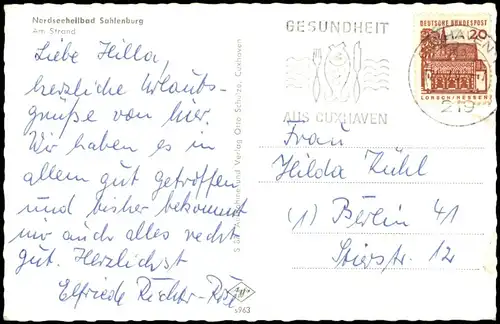 Nordseeheilbad Sahlenburg
Am Strand
Liebe Hilla,
herzliche Urlaubs-
grüße von hier.
Wir haben es in
allem gut getroffen
und bisher bekommt
mir auch alles recht
gut. Herzlichst
Elfriede Richter-
S 57 Aufnahme und Verlag Otto Schulze, Cuxhaven
6963
GESUNDHEIT
AUS CUXHAVEN
DEUTSCHE BUNDESPOST
20
LORSCH/HESSEN
219
Frau
Hilda Kühl
(1) Berlin 41
Stierstr. 12